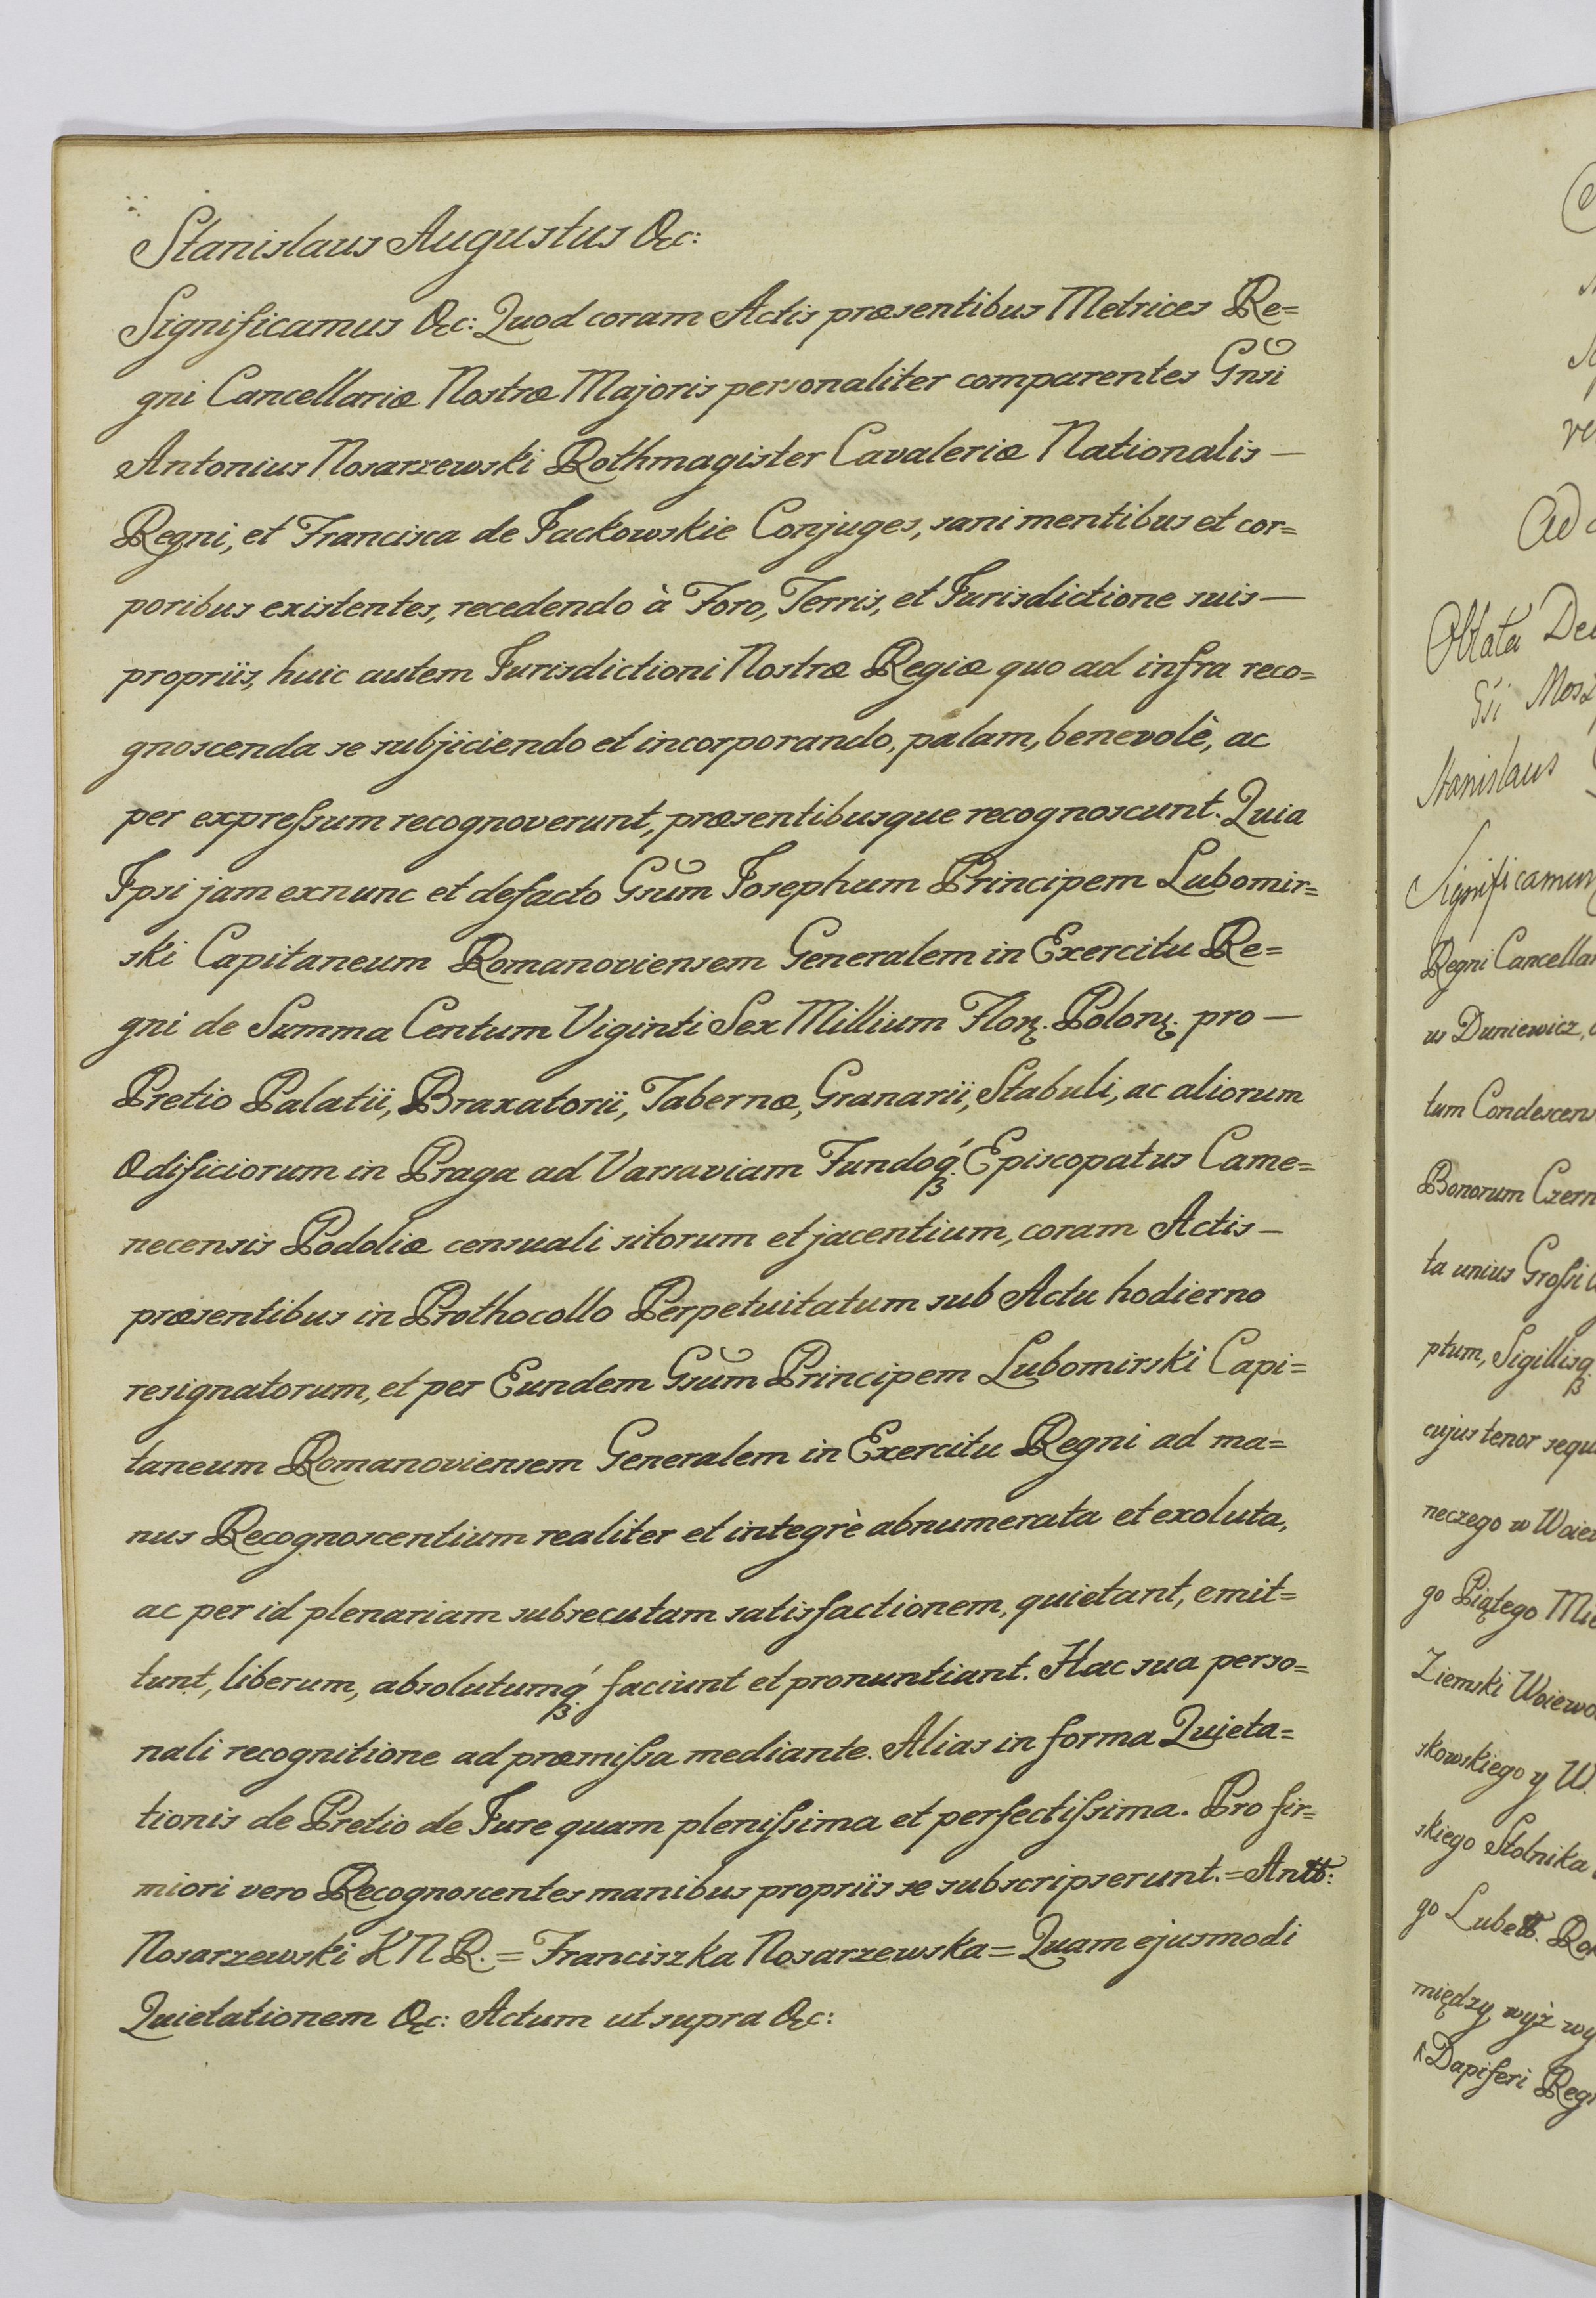 Stanislaus Augustus &c:
Significamus &c: Quod coram Actis præsentibus Metrices Re=
gni Cancellariæ Nostræ Majoris personaliter comparentes Gnsi
Antonius Nosarzewski Rothmagister Cavaleriæ Nationalis —
Regni, et Francisca de Jackowskie Conjuges, sani mentibus et cor=
poribus existentes, recedendo à Foro, Terris, et Jurisdictione suis —
propriis, huic autem Jurisdictioni Nostræ Regiæ quo ad infra reco=
gnoscenda se subjiciendo et incorporando, palam, benevolè, ac
per expreſsum recognoverunt, præsentibusque recognoscunt. Quia
Ipsi jam exnunc et defacto Gsum Josephum Principem Lubomir=
ski Capitaneum Romanoviensem Generalem in Exercitu Re=
gni de Summa Centum Viginti Sex Millium Flor. Polon. pro —
Pretio Palatii, Braxatorii, Tabernæ, Granarii, Stabuli, ac aliorum
Ædificiorum in Praga ad Varsaviam Fundoq́ꝫ Episcopatus Came=
necensis Podoliæ censuali sitorum et jacentium, coram Actis —
præsentibus in Prothocollo Perpetuitatum sub Actu hodierno
resignatorum, et per Eundem Gsum Principem Lubomirski Capi=
taneum Romanoviensem Generalem in Exercitu Regni ad ma=
nus Recognoscentium realiter et integrè abnumerata et exoluta,
ac per id plenariam subsecutam satisfactionem, quietant, emit=
tunt, liberum, absolutumq́ꝫ faciunt et pronuntiant. Hac sua perso=
nali recognitione ad præmiſsa mediante. Alias in forma Quieta=
tionis de Pretio de Jure quam pleniſsima et perfectiſsima. Pro fir=
miori vero Recognoscentes manibus propriis se subscripserunt. = Antt:
Nosarzewski K N R. = Franciszka Nosarzewska = Quam ejusmodi
Quietationem &c: Actum ut supra &c:
Oblata
Stanislaus
Significamus
Regni
us Duniewicz,
tum
Bonorum
ta unius Groſsi
ptum,
cujus tenor
neczego w
go Piątego
Ziemski
skowskiego y W.
skiego Stolnika
go
między wyż
Dapiferi